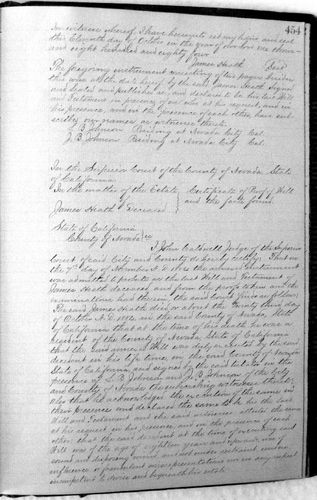 454
In witness whereof, I have hereunto set my hand and seal
this Eleventh day of October in the year of our Lord one thousand
and eight hundred and eighty four
James Heath Seal
The foregoing instrument consisting of one page besides
this was at the date hereof by the said James Heath signed
and sealed and published as, and declared to be his last Will
and Testament in presence of us who at his request, and in
his presence, and in the presence of each other, have sub-
scribed our names as witnesses thereto
L B Johnson Residing at Nevada City Cal.
J B Johnson Residing at Nevada City Cal.
In the Superior Court of the County of Nevada State
of California
In the matter of the Estate
of
James Heath Deceased
Certificate of Proof of Will
and the facts found.
State of California
County of Nevada ss
I John Caldwell Judge of the Superior
Court of said City and County do hereby certify: That on
the 7th day of November A.D. 1884 the annexed instrument
was admitted to probate as the last Will and Testament of
James Heath deceased, and from the proofs taken and the
examinations had therein the said Court finds as follows
That said James Heath died on about the
of October A.D. 1884, in the said County of Nevada, State
of California that at the time of his death he was a
resident of the County of Nevada, State of California
that the said annexed Will was duly executed by the said
decedent in his life time, in the said County of Nevada
State of California, and signed by the said testator in the
presence of L B Johnson and J B Johnson of the City
and County of Nevada the subscribing witnesses thereto;
also that he acknowledged the execution of the same in
their presence and declared the same to be his last
Will and Testament and the said witnesses attested the same
at his request, in his presence, and in the presence of each
other: that the said decedent at the time of executing said
Will was of the age of eighteen years and upwards, was of
sound and disposing mind, and not under restraint undue
influence or fraudulent misrepresentation nor in any respect
incompetent to devise and bequeath his estate.